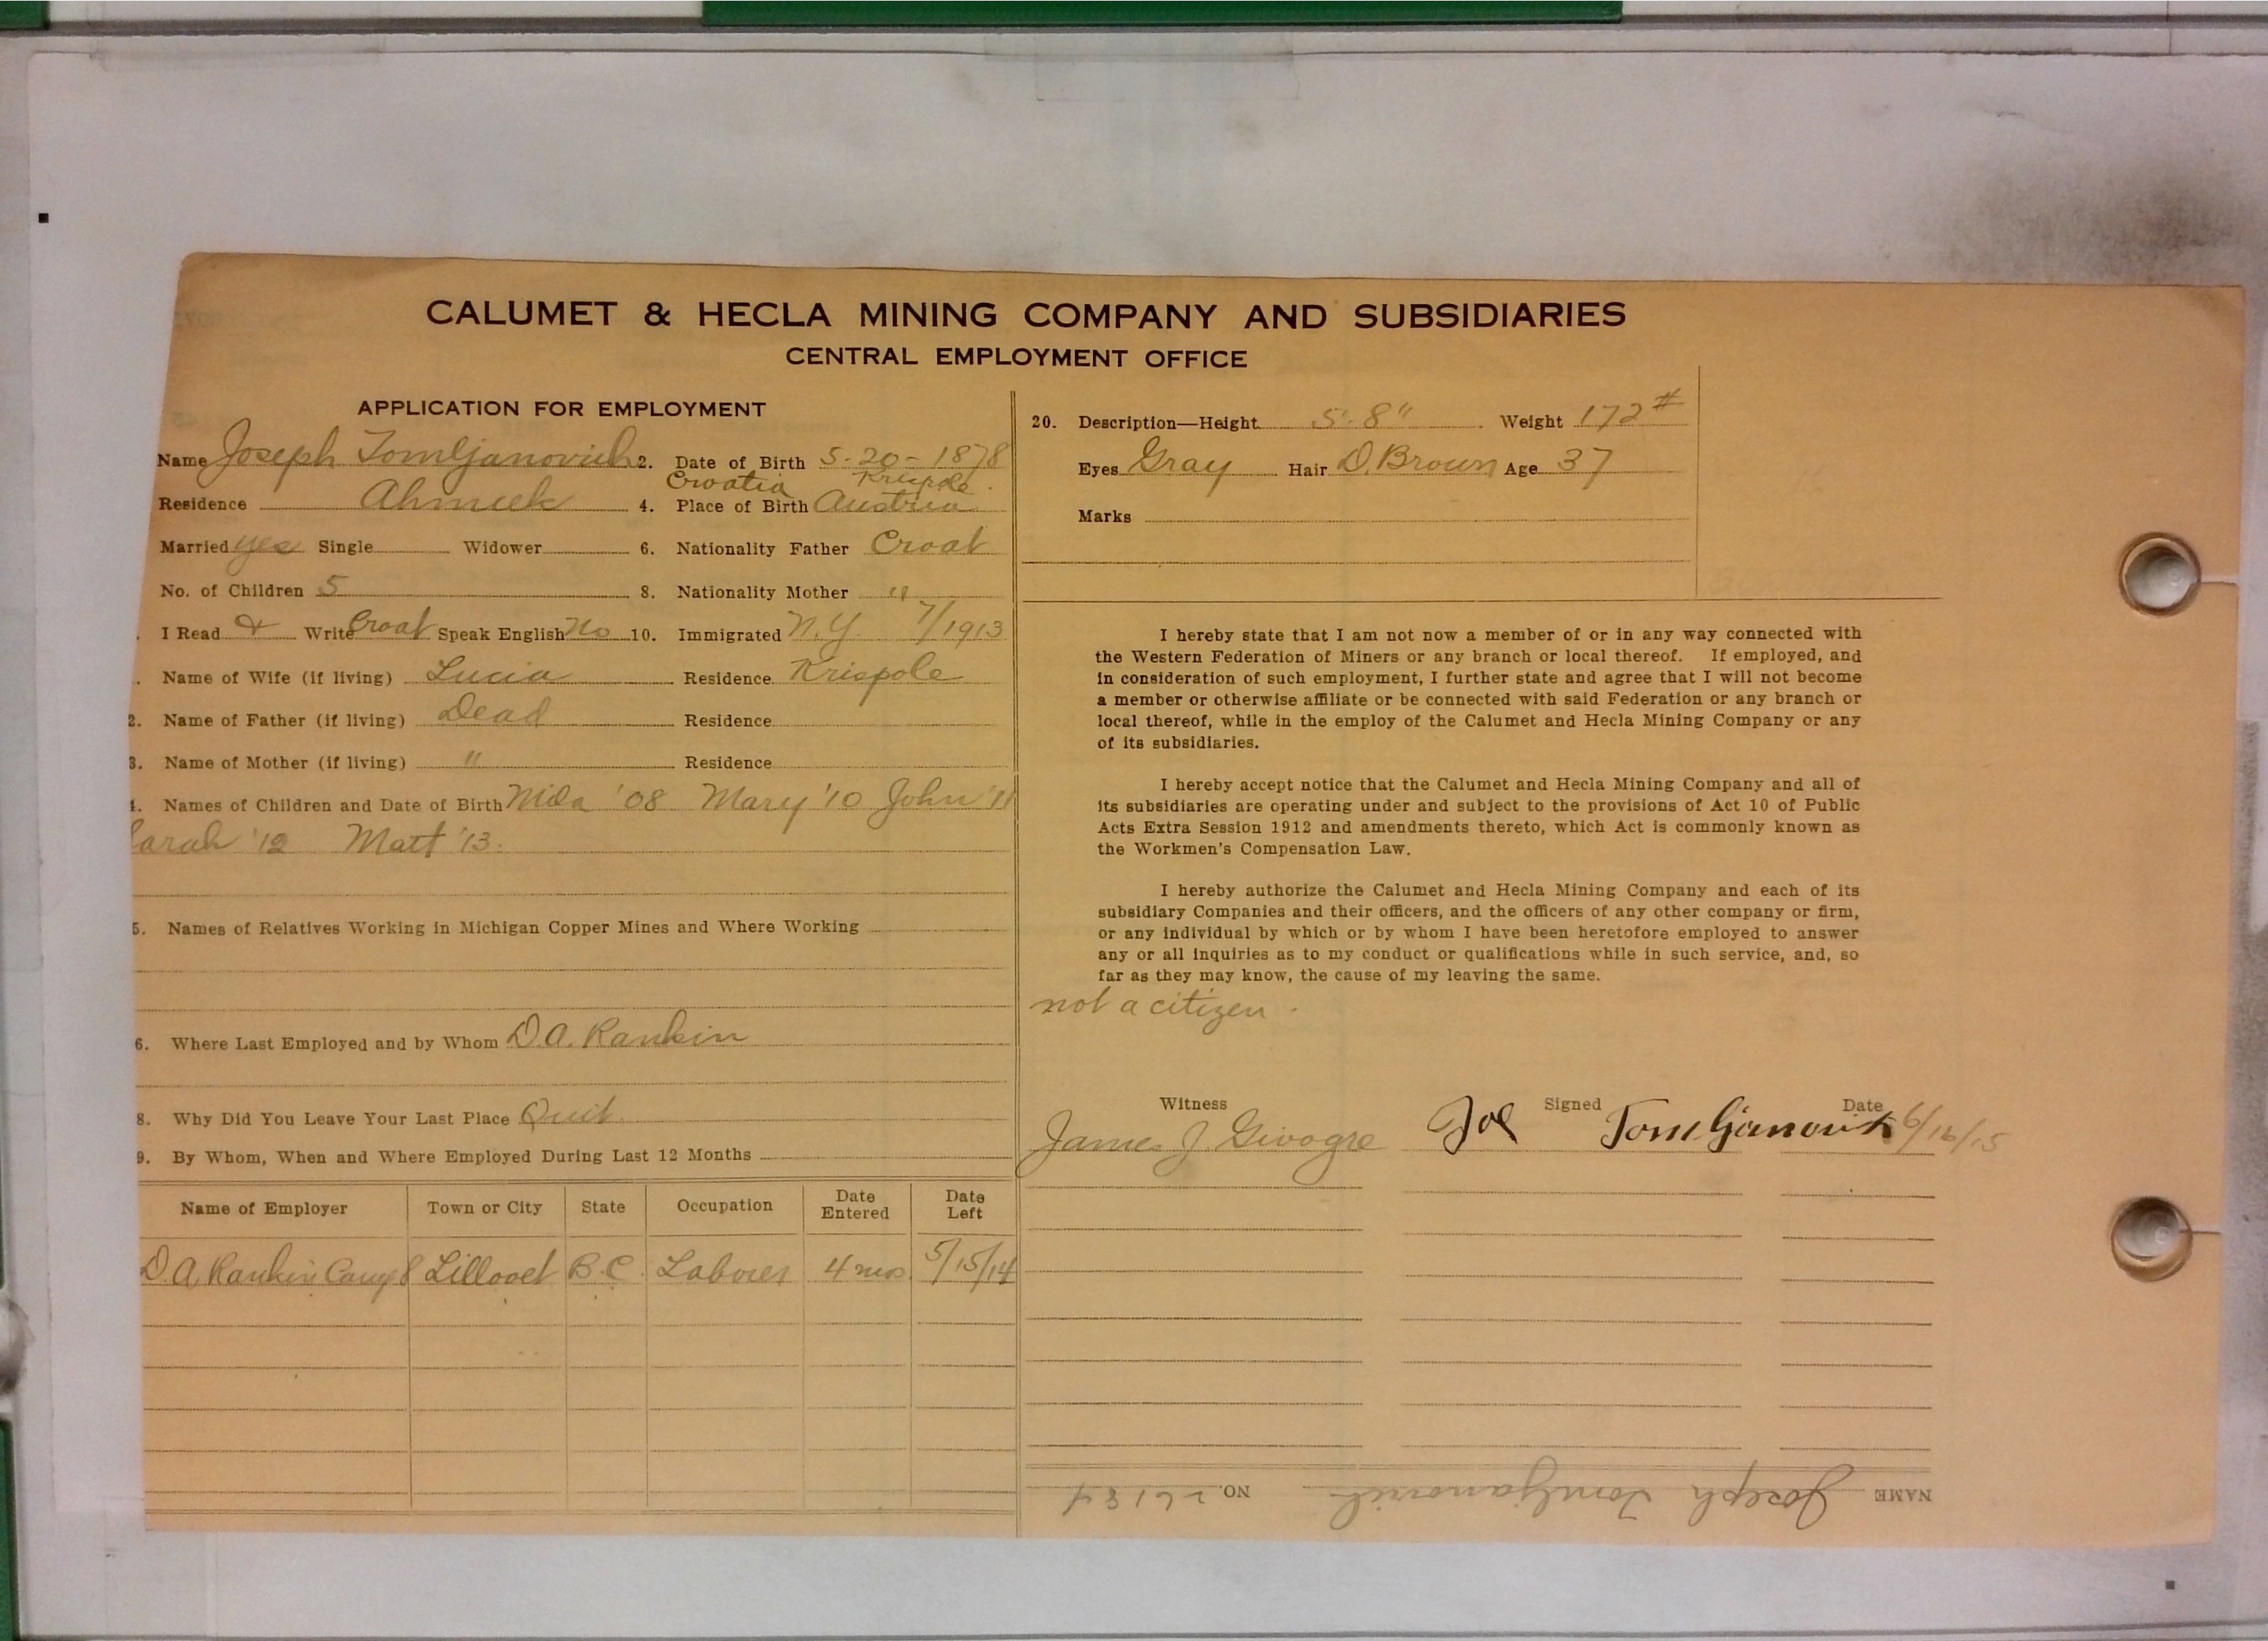 CALUMET & HECLA MINING COMPANY AND SUBSIDIARIES
CENTRAL EMPLOYMENT OFFICE
APPLICATION FOR EMPLOYMENT
Name Joseph Tomljanovich 2. Date of Birth 5-20-1878
Croatia Krispole
Residence Ahmeek 4. Place of Birth Austria
Married yes Single Widower 6. Nationality Father Croat
No. of Children 5 8. Nationality Mother "
. I Read & Write Croat Speak English No 10. Immigrated N.Y. 7/1913
. Name of Wife (if living) Lucia Residence Krispole
2. Name of Father (if living) Dead Residence
3. Name of Mother (if living) " Residence
4. Names of Children and Date of Birth Mida '08 Mary '10 John '11
Sarah '12 Matt '13.
5. Names of Relatives Working in Michigan Copper Mines and Where Working
6. Where Last Employed and by Whom D.A. Rankin
8. Why Did You Leave Your Last Place Quit.
9. By Whom, When and Where Employed During Last 12 Months
Name of Employer Town or City State Occupation Date Entered Date Left
D.A. Rankin Camp 8 Lillooet B.C. Laborer 4 mos. 5/15/14
20. Description—Height 5'-8" Weight 172#
Eyes Gray Hair D. Brown Age 37
Marks
I hereby state that I am not now a member of or in any way connected with
the Western Federation of Miners or any branch or local thereof. If employed, and
in consideration of such employment, I further state and agree that I will not become
a member or otherwise affiliate or be connected with said Federation or any branch or
local thereof, while in the employ of the Calumet and Hecla Mining Company or any
of its subsidiaries.
I hereby accept notice that the Calumet and Hecla Mining Company and all of
its subsidiaries are operating under and subject to the provisions of Act 10 of Public
Acts Extra Session 1912 and amendments thereto, which Act is commonly known as
the Workmen's Compensation Law.
I hereby authorize the Calumet and Hecla Mining Company and each of its
subsidiary Companies and their officers, and the officers of any other company or firm,
or any individual by which or by whom I have been heretofore employed to answer
any or all inquiries as to my conduct or qualifications while in such service, and, so
far as they may know, the cause of my leaving the same.
not a citizen.
Witness Signed Date
James J. Joe Tomljanovich 6/16/15
NAME Joseph Tomljanovich NO. 26184